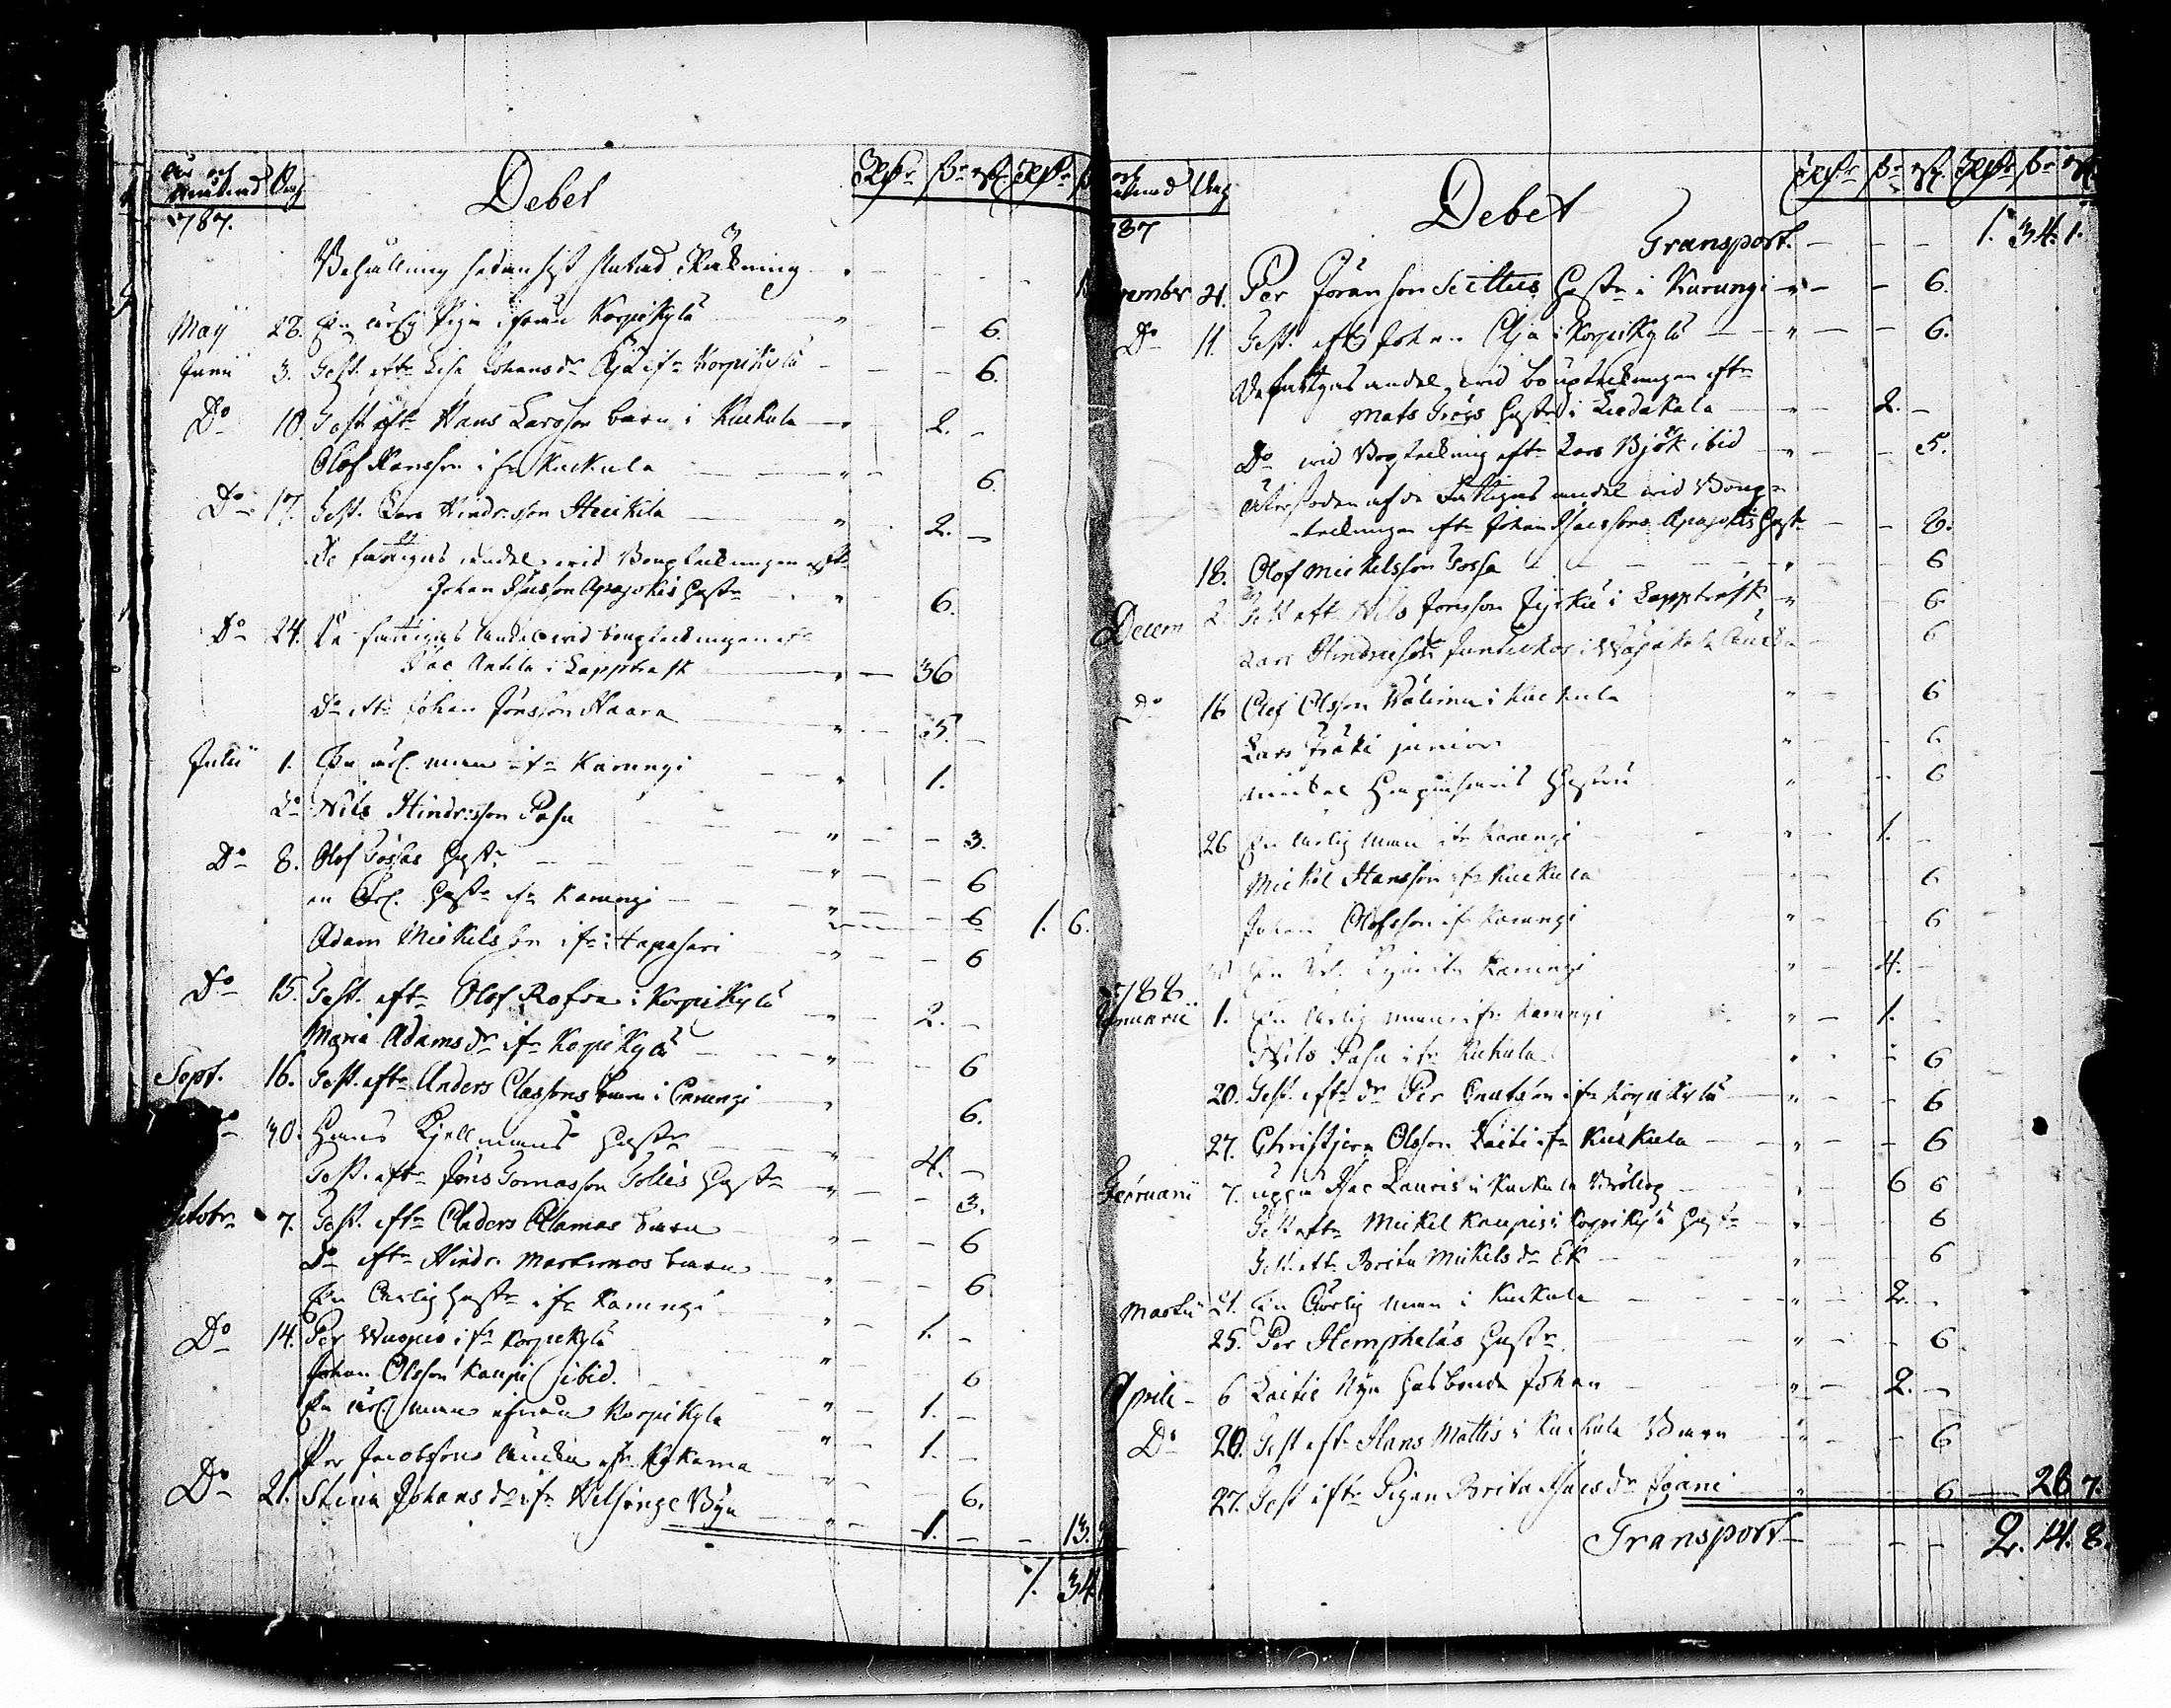 År och Månad Dag Debet Rdr ß rst Rdr ß
1787.
Behållning sedan sist slutad Räkning
May 28. En ärlig Piga ifrån Korpikylä " - - 6.
Junii 3. Test. eftr Lisa Johansdr Äijä ifr Korpikylä - - 6.
Do 10. Test. eftr Hans Larsson barn i Kuckula " - 2. -
Olof Hansson ifr Kuckula " - 6.
Do 17. Test. Lars Hindrsson Heikila " 2. -
De fattigas andel wid Bouptekningen eftr
Johan Isacsson Apajokis Hustr " - 6.
Do 24. De fattigas andel wid bouptekningen eftr
Isac Antila i Lappträsk " - 36
Do eftr Johan Jönsson Haara " - 5. -
Julii 1. En ärl. man ifr Karungi " 1.
Do Nils Hindrsson Pasu " - - 3.
Do 8. Olof Tossas Hustr " - - 6
en Ärl. Hustr ifr Karungi " - - 6 1. 6.
Adam Mickelsson ifr Hapasari " - 6
Do 15. Test. eftr Olof Rofva i Korpikylä " - 2. -
Maria Adamsdr ifr Kopikylä " - 6
Sept. 16. Test. eftr Anders Classons barn i Carungi " 6.
Do 30. Hans Kjellmans Hustr " 4. -
Test. eftr Jöns Tomasson Tollis Hustr " - - 3.
Octobr 7. Test. eftr Anders Alamas barn " - - 6
Do eftr Hindr. Martimos barn " - - 6
En Ärlig Hustr ifr Karungi " - 1. -
Do 14. Per Wuopio ifr Korpikylä " - - 6
Johan Olsson Kaupi ibid. " - 1. -
En ärl man ifrån Korpikyla " - 1. -
Per Jacobssons Änka ifr Kukama " - 6.
Do 21. Stina Johansdr ifr Helsinge Byn " - 1. - - 13.
1. 34.
och Månad Dag Debet Rdr ß rst. Rdr ß rst.
1787
Transport. - - - 1. 34. 1.
November 4. Per Jöransson Seittus Hustr i Karungi " - - 6.
Do 11. Test. eftr Johan Äijä i Korpikylä " - - 6.
De fattigas andel wid bouptekningen eftr
Mats Gregs Hustr i Liedakala " - 2. -
Do wid Bouptekning eftr Lars Björk ibid " - - 5.
Återstoden af de Fattigas andel wid Boup-
tekningen eftr Johan Isacssons Apajokis Hustr - - 8.
18. Olof Mickelsson Tossa " - 6
Decem 2. Test eftr Nils Jonsson Jyrkä i Lappträsk " 6.
Lars Hindricsson i Wojakala 6
Do 16 Olof Olsson Wälimaa i Kuckula " - 6
Lars Fräki junior " - - 6
Mickel Hapasaaris Hustru " - 6
26 En ärlig man ifr Karungi " - 1. -
Mickel Hansson ifr Kuckula " - - 6
Johan Olofsson ifr Karungi " - - 6
En ärl. ifr Karungi " - 4. -
1788
Januarii 1. En ärlig man ifr Karungi " - 1. -
Nils Pasu ifr Kuckula " - 6
20. Test. eftr dr Per Knutsson ifr Korpikylä " - 6
27. Christjern Olsson Laiti ifr Kuckula " - - 6
Februarii 7. uppå Isac Lauris i Kuckula Bröllop " 6 6
Test eftr Mickel Kaupis i Korpikylä Hustr " - 6
Test. eftr Brita Mickelsdr Ek " - 6
Martii 21. En Ärlig man i Kuckula " - 2. -
25. Per Hemphälas Hustr. " - - 6
Aprile 6 Laitis Nya Husbonde Johan " - 2. -
Do 20. Test eftr Hans Mattis i Kuckula Barn " - - 6
27. Test eftr Pigan Brita Isacsdr Joani " - - 6 - 28 7.
Transport - - - 2. 14. 8.